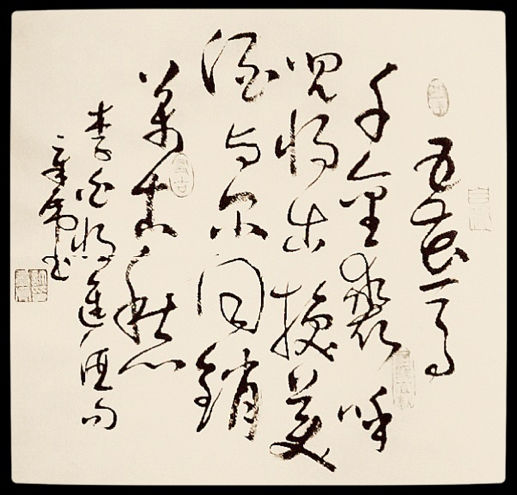 五花马
千金裘呼
児将出换美
酒与尔同销
万古愁
李白将进酒句